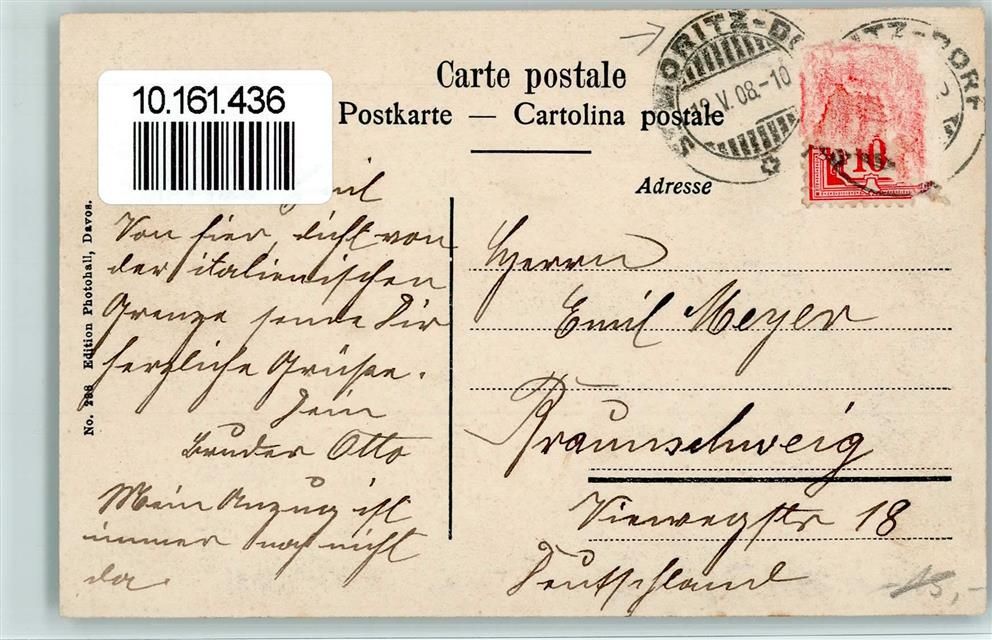 10.161.436
Carte postale
Postkarte — Cartolina postale
Adresse
ST. MORITZ-DORF
12.V.08.-10
10
No. Edition Photohall, Davos.
Emil
Von hier, dicht von
der italienischen
Grenze sende Dir
herzliche Grüsse.
Dein
Bruder Otto
Mein Anzug ist
immer noch nicht
da.
Herrn
Emil Meyer
Braunschweig
Viewegstr 18
Deutschland
15,-